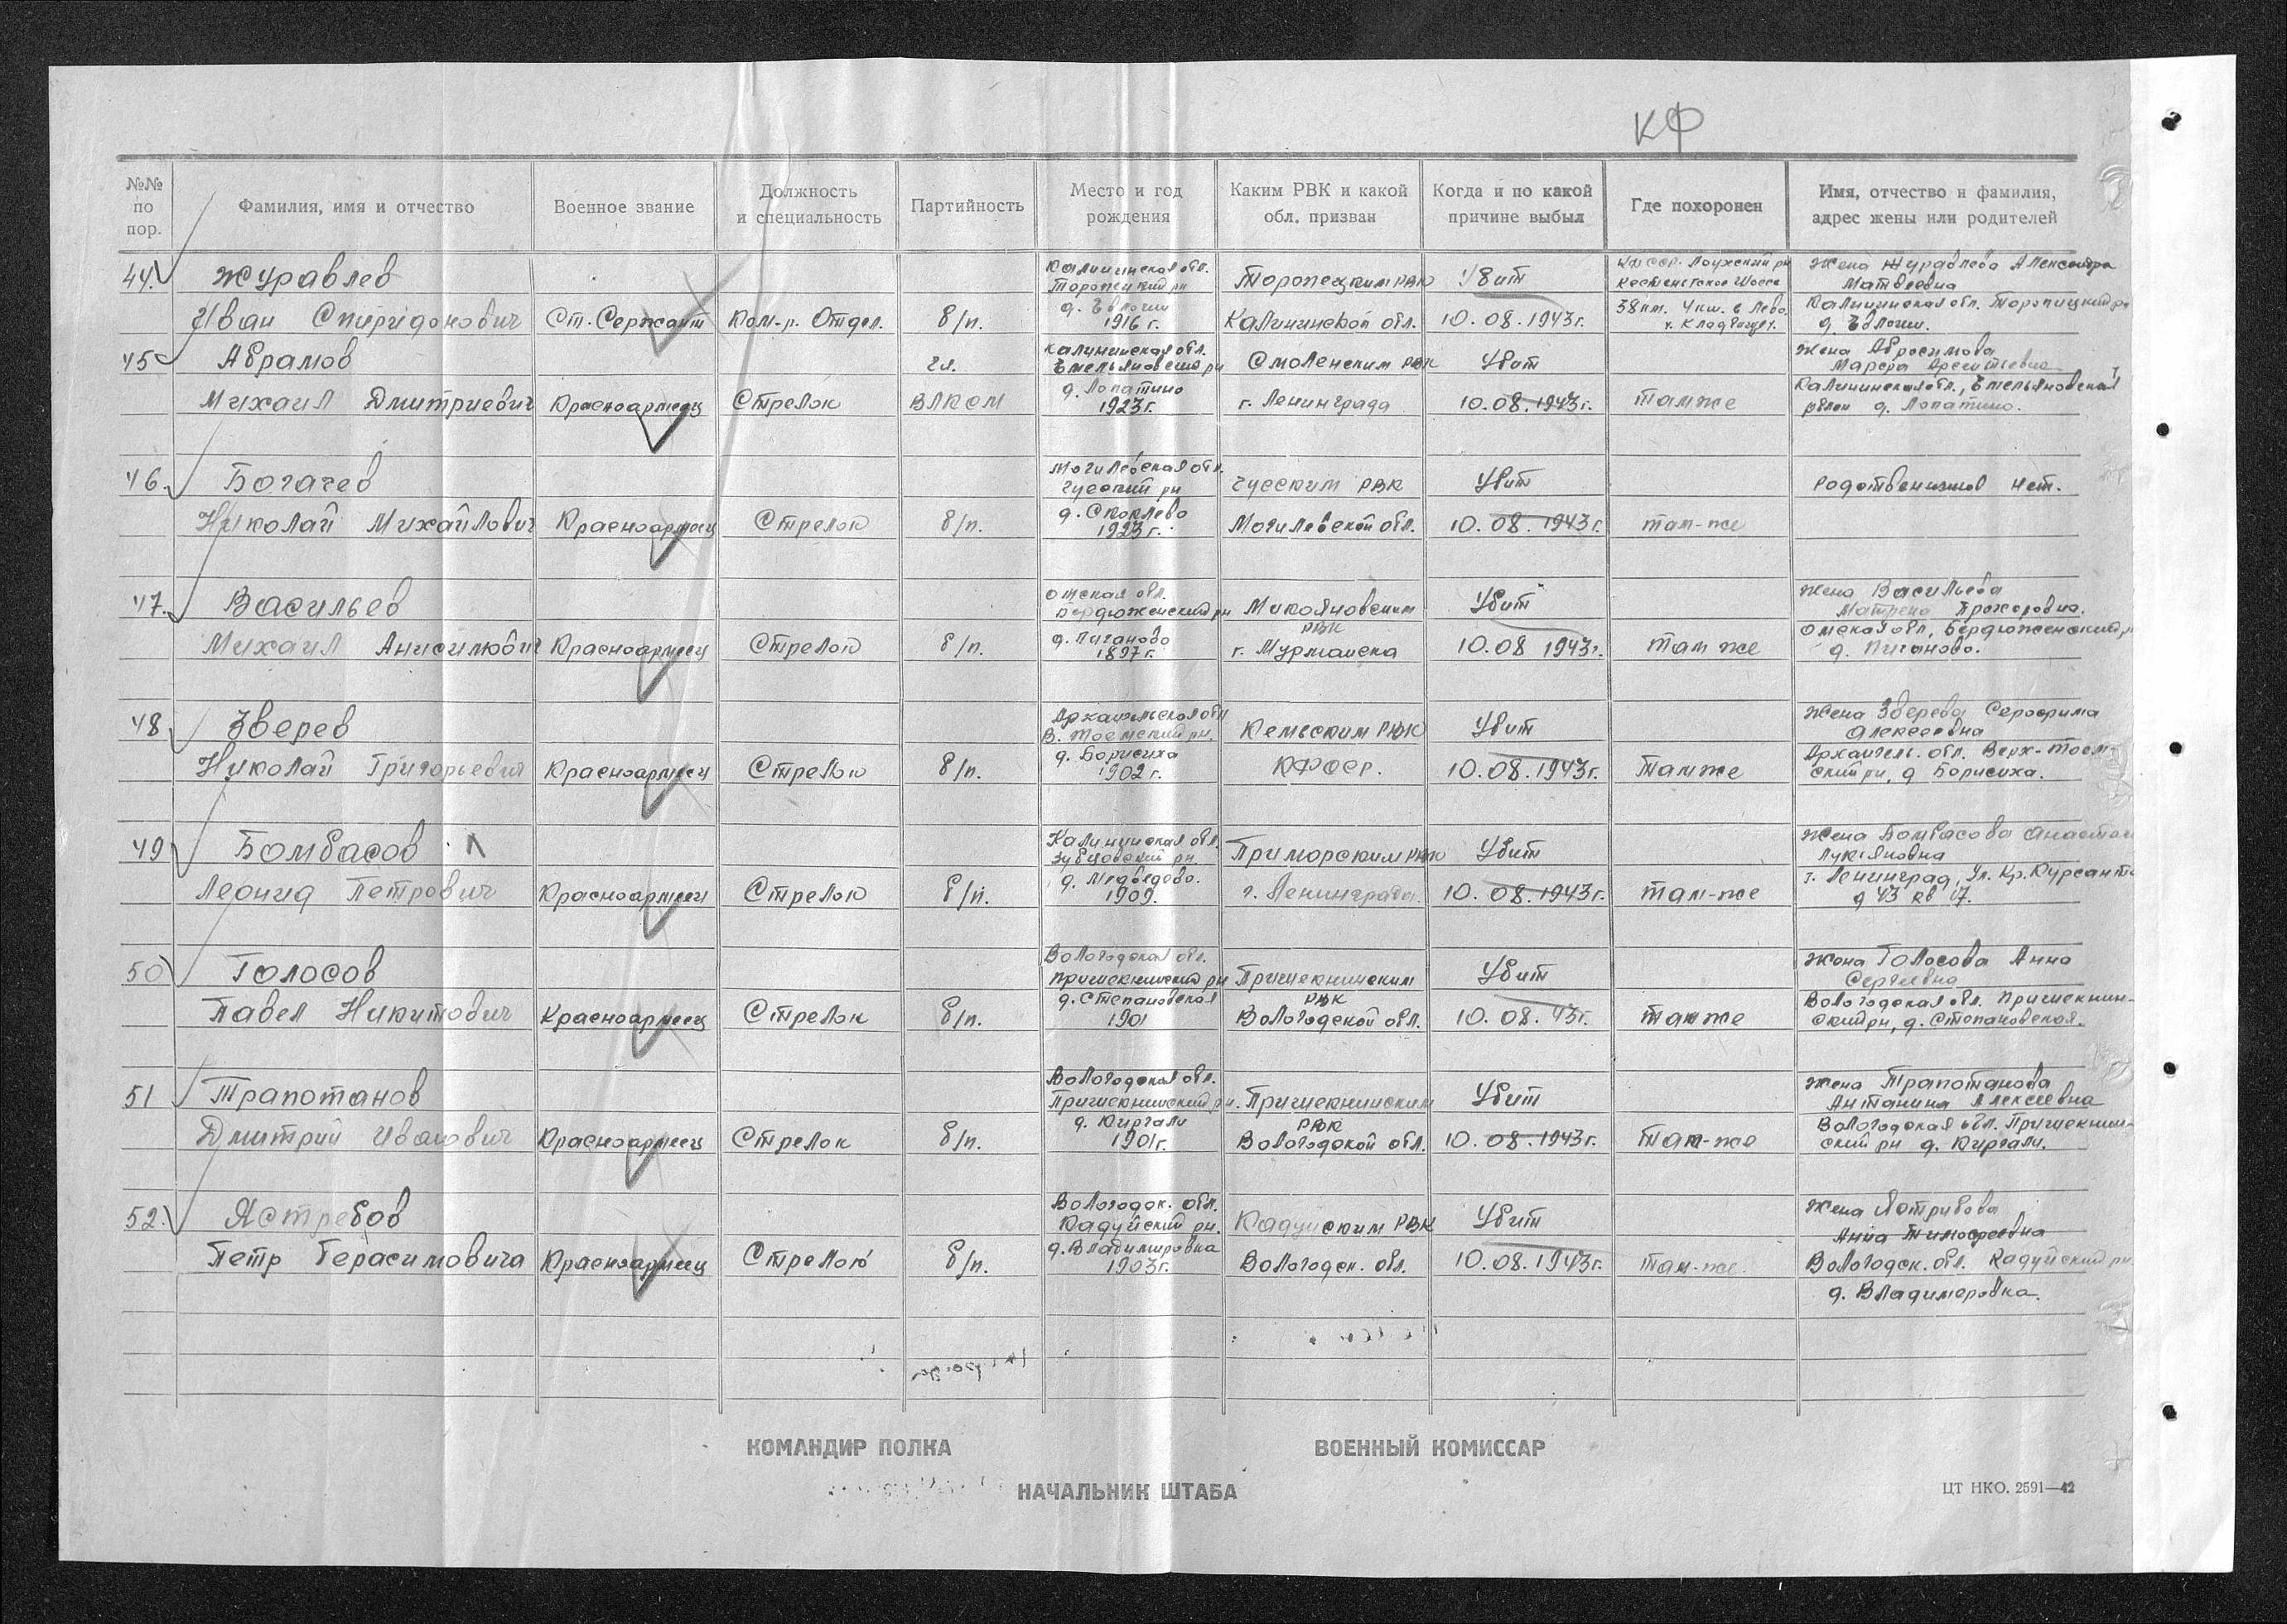 КФ
№№ по пор.
Фамилия, имя и отчество
Военное звание
Должность и специальность
Партийность
Место и год рождения
Каким РВК и какой обл. призван
Когда и по какой причине выбыл
Где похоронен
Имя, отчество и фамилия, адрес жены или родителей
44. Журавлев Калининская обл. Торопецким РВК Убит КФССР. Лоухский рн Жена Журавлева Александра
Торопецкий рн Кестеньгское Шоссе Матвеевна
Иван Спиридонович Ст. Сержант Ком-р. Отдел. б/п. д. 1916 г. Калининской обл. 10.08.1943г. 38 км. Калининская обл. Торопецкий р
д.
45 Абрамов чл. Калининская обл. Емельяновский рн Смоленским РВК Убит Жена
Михаил Дмитриевич Красноармеец Стрелок ВЛКСМ д. Лопатино 1923г. г. Ленинграда 10.08.1943г. там же Калининская обл., Емельяновский
район д. Лопатино.
46. Богачев Могилевская обл. Чусский рн Чусским РВК Убит Родственников нет.
Николай Михайлович Красноармеец Стрелок б/п. д. 1923 г. Могилевской обл. 10.08.1943г. там-же
47. Васильев Омская обл. Бердюженский рн Микояновским РВК Убит Жена Васильева
Матрена Прохоровна.
Михаил Анисимович Красноармеец Стрелок б/п. д. Пиганово 1897г. г. Мурманска 10.08 1943г. там же Омская обл, Бердюженский р
д. Пиганово.
48. Зверев Архангельская обл В. Тоемский рн. Кемьским РВК Убит Жена Зверева Серафима
Алексеевна
Николай Григорьевич Красноармеец Стрелок б/п. д. Борисиха 1902 г. КФССР. 10.08.1943г. там же Архангель. обл. Верх-Тоем-
ский рн, д Борисиха.
49 Бомбасов Калининская обл. Зубцовский рн. Приморским РВК Убит Жена Бомбасова
Лукияновна
Леонид Петрович Красноармеец Стрелок б/п. д. Медведево. 1909. г. Ленинграда. 10.08.1943г. там-же г. Ленинград, Ул. Кр. Курсант
д 43 кв 17.
50 Голосов Вологодская обл. Пришекнинский рн Пришекнинским РВК Убит Жена Голосова Анна
Сергеевна
Павел Никитович Красноармеец Стрелок б/п. д. Степановская 1901 Вологодской обл. 10.08.43г. там же Вологодская обл. Пришекнин-
ский рн, д. Степановская.
51 Трапотанов Вологодская обл. Пришекнинский рн. Пришекнинским РВК Убит Жена Трапотанова
Антанина Алексеевна
Дмитрий Иванович Красноармеец Стрелок б/п. д. Киргали 1901г. Вологодской обл. 10.08.1943г. там-же Вологодская обл. Пришекнин-
ский рн д. Киргали.
52. Ястребов Вологодск. обл. Кадуйский рн. Кадуйским РВК Убит Жена Ястрибова
Анна Тимофеевна
Петр Герасимовича Красноармеец Стрелок б/п. д. Владимировка 1903г. Вологодск. обл. 10.08.1943г. там-же. Вологодск. обл. Кадуйский рн
д. Владимеровка.
КОМАНДИР ПОЛКА
ВОЕННЫЙ КОМИССАР
НАЧАЛЬНИК ШТАБА
ЦТ НКО. 2591—42